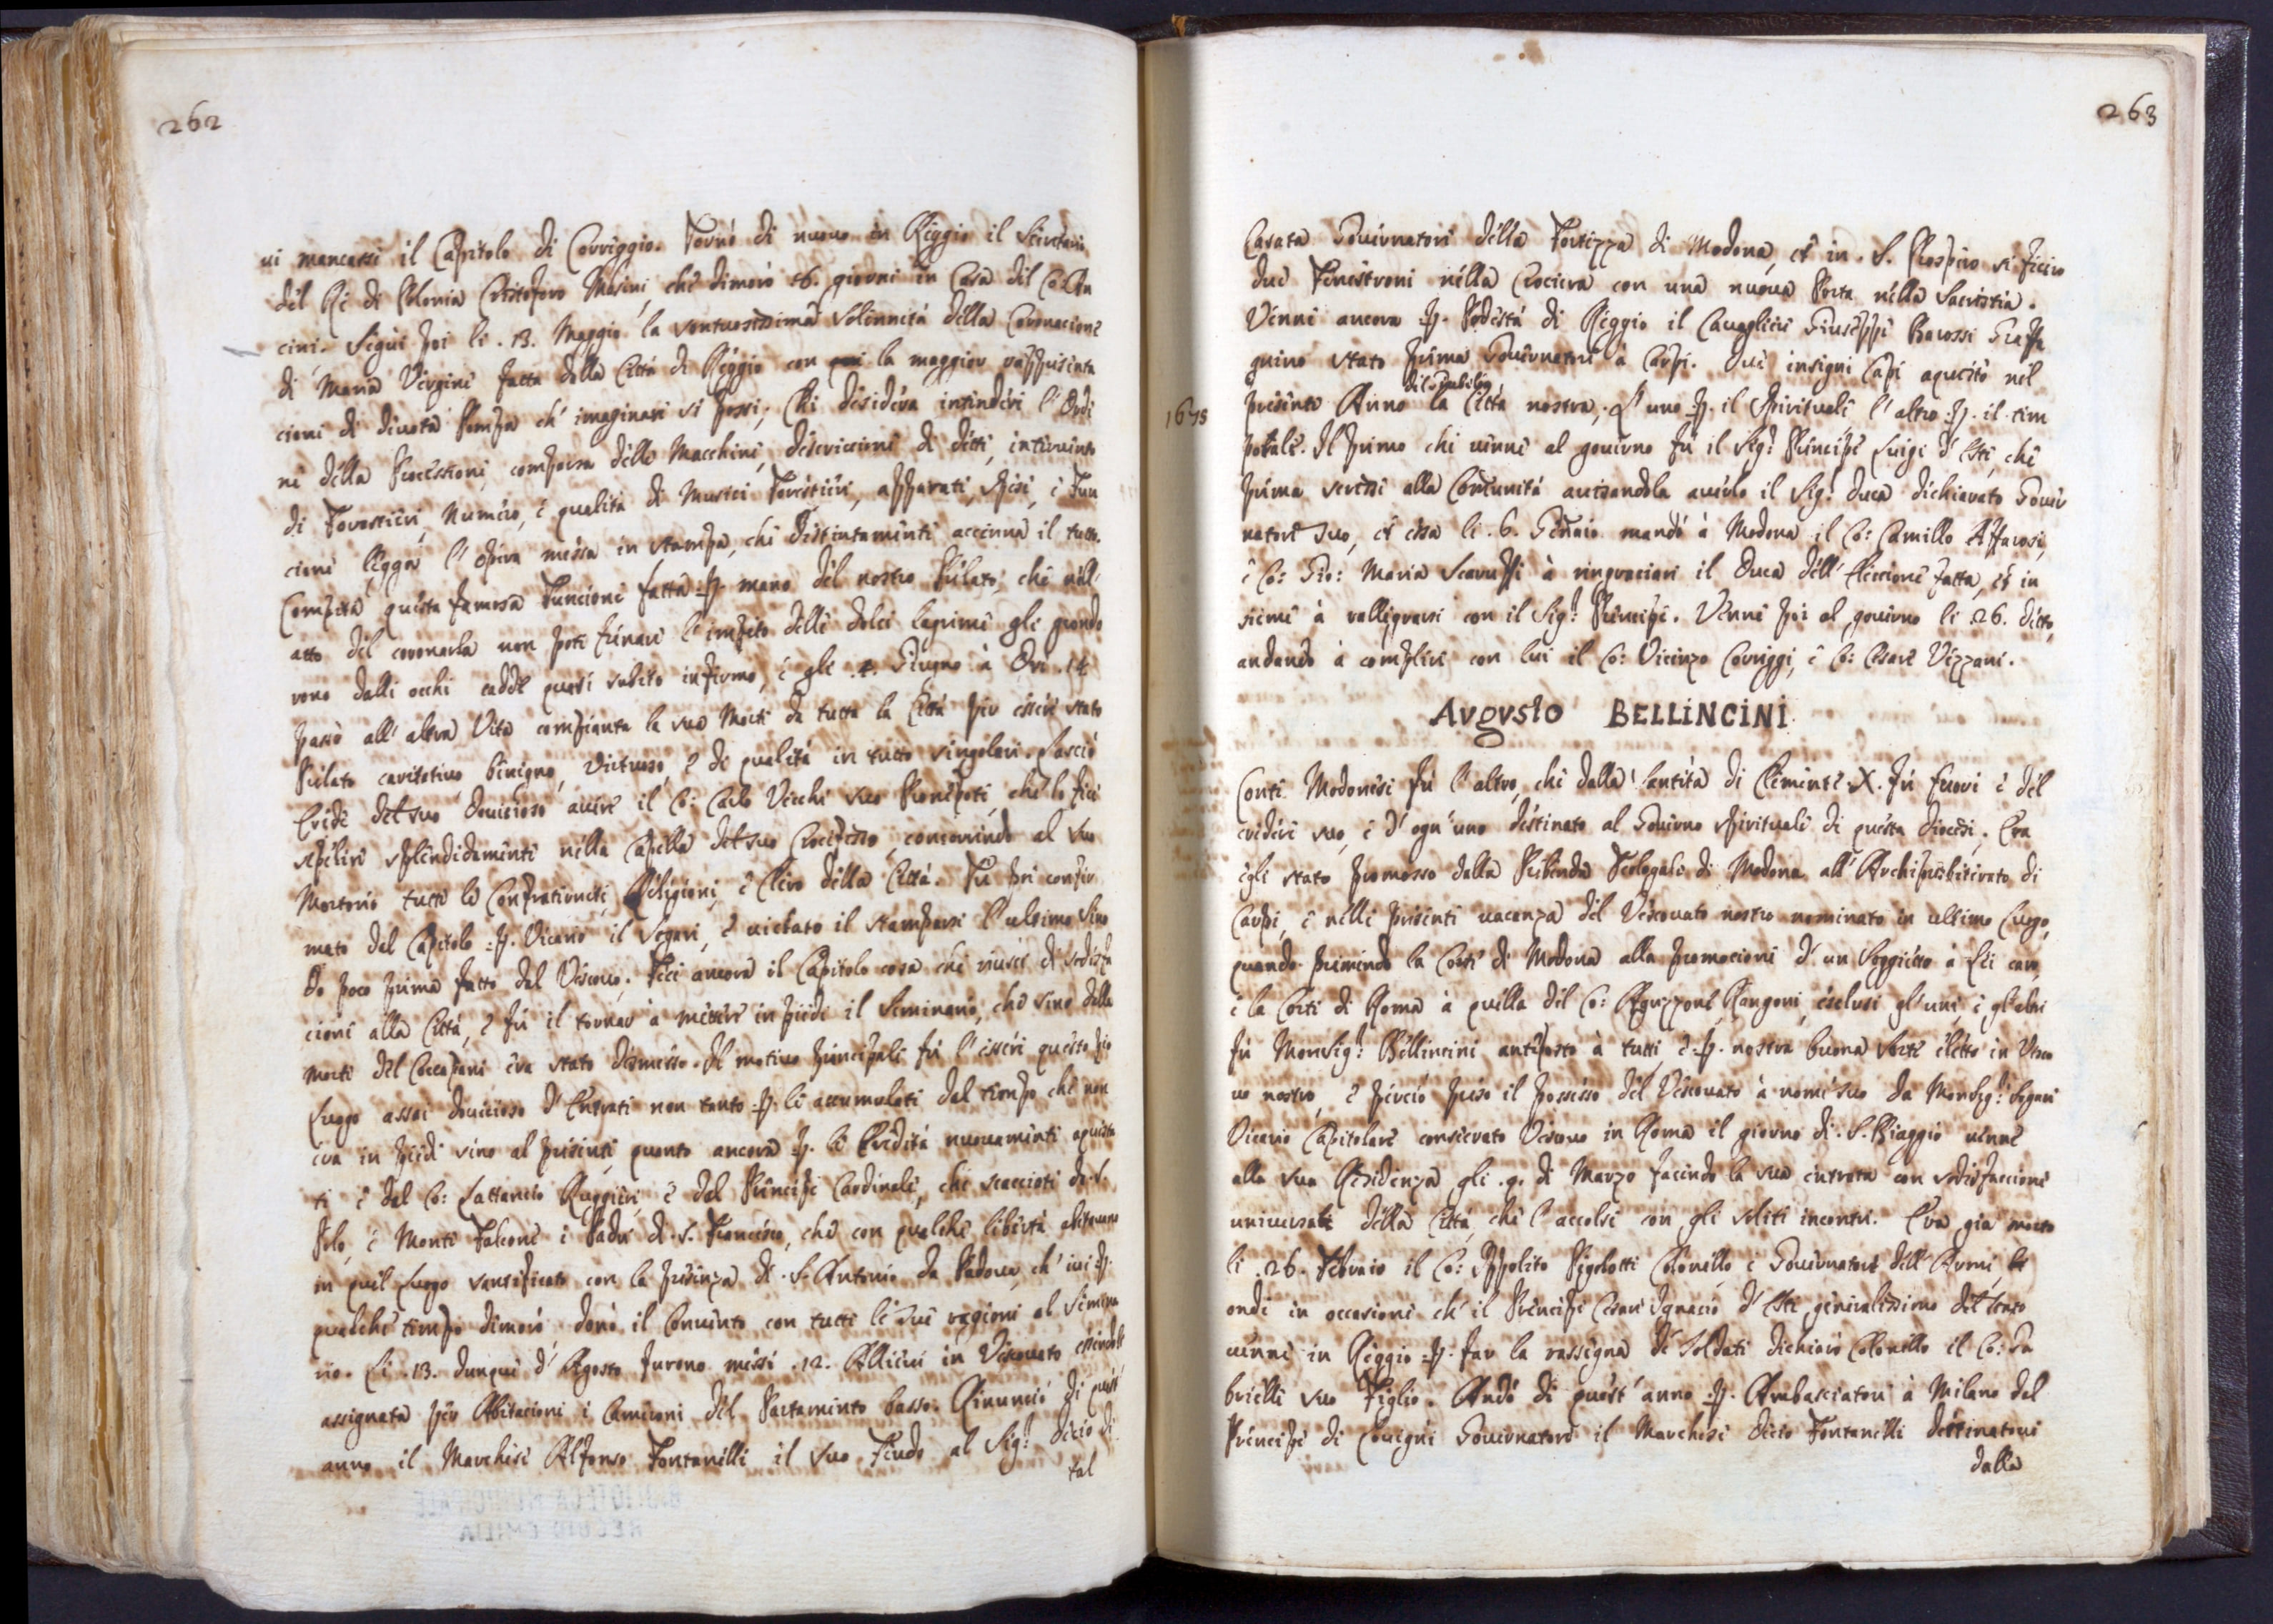 262
ui mancassi il Capitolo di Correggio. Tornò di nuouo in Reggio il Secretario
del Rè di Polonia Cristoforo Masini, che dimorò 16. giorni in Casa del Co:
cini. Seguì poi li .13. Maggio la sontuosissima Solennità della Coronacione
di Maria Vergine fatta della Città di Reggio con la maggior
cioni di diuota Pompa ch' imaginari si possi; Chi desidera intendere l' Ordi
ne della Processione, comparsa delle Macchine, descriccioni di detti, interuento
di Forastieri, Numero, e qualità di Musici Forestieri, apparati, spese, e Fun
cioni legga l' opera messa in stampa, che distintamente accenna il tutto.
Compita questa famosa Funcione fatta p. mano del nostro Prelato, che nell'
atto del coronarla non potè frenare l' impeto delle dolci lagrime gli gronda
rono dalli occhi cadde quasi subito infermo, e gli .4. Giugno à Ore .14
passò all' altra Vita compianta la sua Morte da tutta la Città per essere stato
Prelato caritatiuo, benigno, Virtuoso, e di qualità in tutto singolari. Lasciò
Erede del suo douicioso auere il Co: Carlo Vecchi suo Pronepote, che lo fece
sepelire splendidamente nella Capella del suo Crocefisso, concorrendo al suo
Mortorio tutte le Confraternite, Religioni, e Clero della Città. Fu poi confir
mato dal Capitolo p. Vicario il Segari, e vietato il stamparsi l' ultimo Sino
do poco prima fatto dal Vescouo. Fece ancora il Capitolo cosa che riuscì di sodisfa
cione alla Città, e fù il tornar à mettere in piedi il Seminario, che sino dalla
morte del Coccapani era stato dismesso. Il motiuo principale fù l' essere questo pio
Luogo assai douicioso d' Entrate non tanto p. le accumulate dal tempo che non
era in piedi sino al presente, quanto ancora p. le Eredità nuouamente aquista
te e dal Co: Lattancio Ruggieri, e dal Principe Cardinale, che scacciati da S.
Polo, e Monte Falcone i Padri di .S. Francesco, che con qualche libertà abitauano
in quel Luogo santificato con la presenza di .S. Antonio da Padoua, ch' iui p.
qualche tempo dimorò, donò il Conuento con tutte le sue ragioni al Semina
rio. Li .13. dunque d' Agosto furono messi .12. Allieui in Vescouato essendole
assignata per Abitacione i Cameroni del Partamento basso. Rinunciò di quest'
anno il Marchese Alfonso Fontanelli il suo Feudo al Sig.r Decio di
tal
263
Casata Gouernatore della Fortezza di Modona, et in .S. Prospero si fecero
due Fenestroni nella Crociera con una nuoua Porta nella Sacristia.
Venne ancora p. Podestà di Reggio il Caualiere Giuseppe Barossi Graffa
gnino stato prima Gouernatore à Carpi. Due insigni Capi aquistò nel
1675
presente Anno del Giubileo la Città nostra; L' uno p. il Spirituale l' altro p. il tem
porale. Il primo che uenne al gouerno fù il Sig.r Principe Luigi d' Este, che
prima scrisse alla Comunità auisandola auerlo il Sig.r Duca dichiarato Gouer
natore suo, et essa li .6. Genaio mandò à Modona il Co: Camillo Affarosi,
e Co: Gio: Maria Scaruffi à ringraciare il Duca dell' Eleccione fatta, et in
sieme à rallegrarsi con il Sig.r Principe. Venne poi al gouerno li .26. detto,
andando à complire con lui il Co: Vicenzo Correggi, e Co: Cesare Vezzani.
AVGVSTO BELLINCINI
Conte Modonese fù l' altro, che dalla Santità di Clemente .X. fù fuori e del
credere suo, e d' ogn' uno destinato al Gouerno spirituale di questa Diocesi. Era
egli stato promosso dalla Prebenda Teologale di Modona all' Archipresbiterato di
Carpi, e nelle presente uacanza del Vescouato nostro nominato in ultimo Luogo,
quando premendo la Corte di Modona alla promocione d' un Soggietto à Lei caro,
e la Corte di Roma à quella del Co: Aguzzone Rangoni, esclusi gl' uni, e gl' altri
fù Monsig.r Bellincini anteposto à tutti, e p. nostra buona sorte eletto in Vesco
uo nostro, e perciò preso il possesso del Vescouato à nome suo da Monsig.r Segari
Vicario Capitolare consecrato Vescouo in Roma il giorno di .S. Biaggio uenne
alla sua Residenza gli .9. di Marzo facendo la sua entrata con sodisfaccione
uniuersale della Città, che l' accolse con gli soliti incontri. Era già morto
li .26. Febraio il Co: Ippolito Pigolotti Colonello, e Gouernatore dell' Armi,
onde in occasione ch' il Principe Cesare Ignacio d' Este generalissimo del Stato
uenne in Reggio p. far la rassegna de' Soldati dichiarò Colonello il Co: Ga
brielle suo Figlio. Andò di quest' anno p. Ambasciatore à Milano dal
Principe di Lignè Gouernatore il Marchese Decio Fontanelli destinatoui
dalla